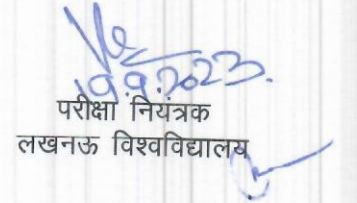 19.9.2023.
परीक्षा नियंत्रक
लखनऊ विश्वविद्यालय